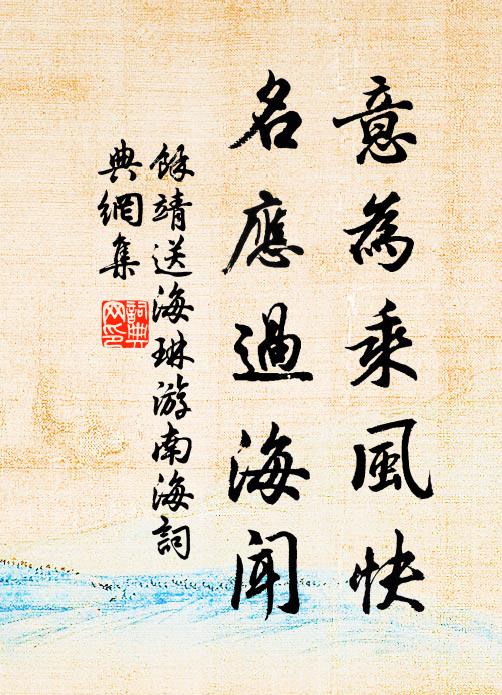 意為乘風快
名應過海聞
餘靖送海琳游南海詞
典網集
詞典
网印